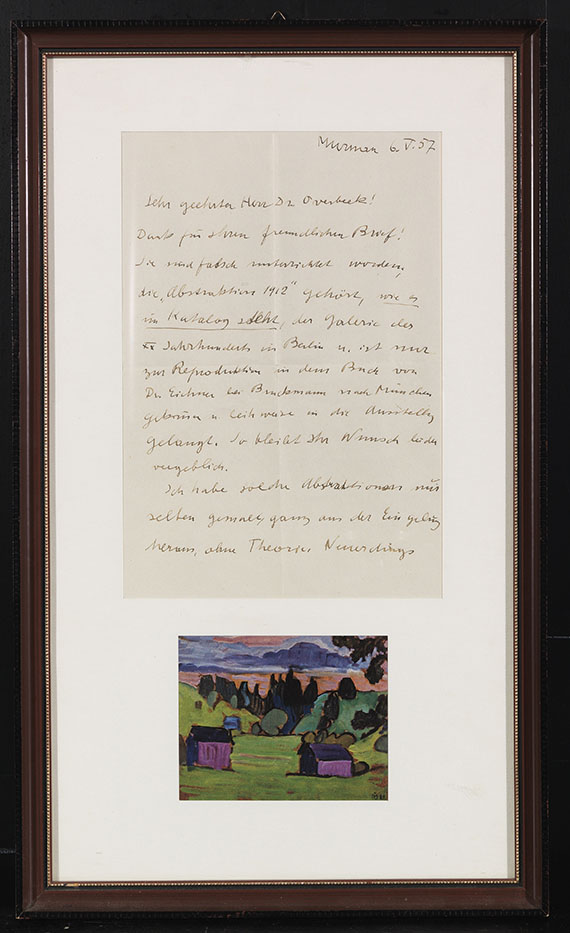 Murnau 6.V.57
Sehr geehrter Herr Dr. Overbeck!
Dank für Ihren freundlichen Brief!
Sie sind falsch unterrichtet worden,
die „Abstraktion 1912" gehört, wie es
im Katalog steht, der Galerie des
XX Jahrhunderts in Berlin u. ist nur
zur Reproduktion in dem Buch von
Dr. Eichner bei Bruckmann nach München
gekommen u. leihweise in die Ausstellg
gelangt. So bleibt Ihr Wunsch leider
vergeblich.
Ich habe solche Abstraktionen nur
selten gemalt, ganz aus der Eingebung
heraus, ohne Theorie. Neuerdings